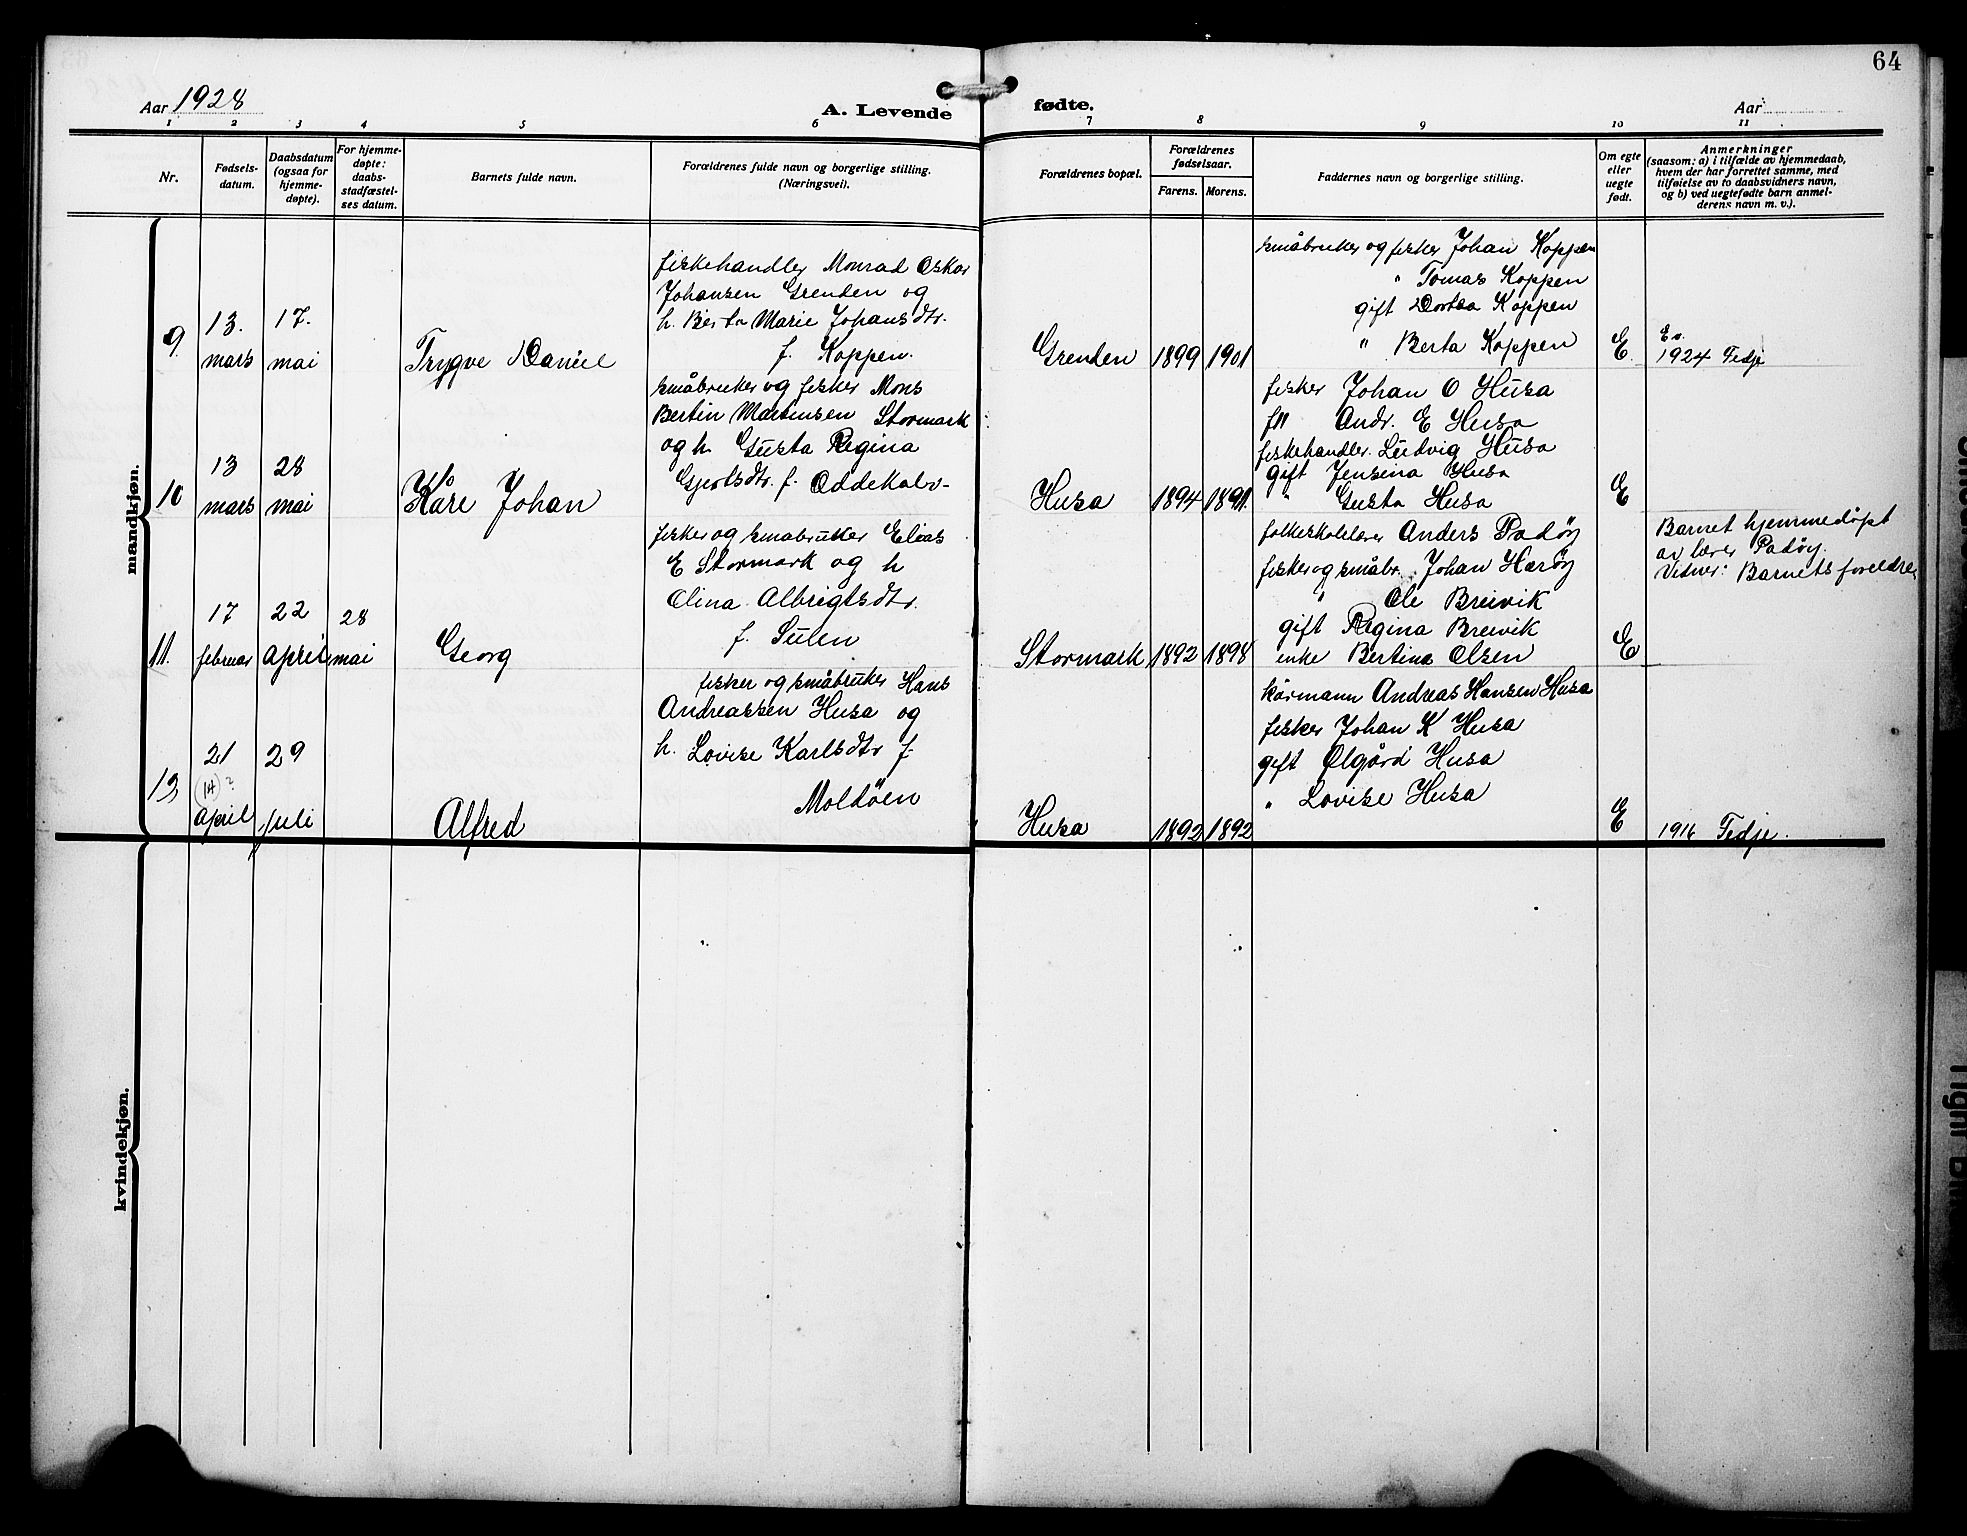 64
Aar 1928
A. Levende
fødte.
Aar
1 2 3 4 5 6 7 8 9 10 11
Nr.
Fødsels-
datum.
Daabsdatum
(ogsaa for
hjemme-
døpte).
For hjemme-
døpte:
daabs-
stadfæstel-
ses datum.
Barnets fulde navn.
Forældrenes fulde navn og borgerlige stilling.
(Næringsvei).
Forældrenes bopæl.
Forældrenes
fødselsaar.
Farens. Morens.
Faddernes navn og borgerlige stilling.
Om egte
eller
uegte
født.
Anmerkninger
(saasom: a) i tilfælde av hjemmedaab,
hvem der har forrettet samme, med
tilføielse av to daabsvidners navn,
og b) ved uegtefødte barn anmel-
derens navn m. v.).
mandkjøn.
9.
13.
mars
17.
mai
Trygve Daniel
fiskehandler Monrad Oskar
Johansen Grenden og
h. Berta Marie Johansdtr.
f. Koppen.
Grenden
1899
1901
småbruker og fisker Johan Koppen
" Tomas Koppen
gift Dortea Koppen
" Berta Koppen
E.
1924 Fedje
10
13
mars
28
mai
Kåre Johan
småbruker og fisker Mons
Bertin Martinsen Stormark
og h. Gusta Regina
Gjertsdtr. f. Oddekalv-
Husa
1894
1891.
fisker Johan O Husa
Andr. E Husa
fiskehandler. Ludvig Husa
gift Jensina Husa
" Gusta Husa
E
11.
17
februar
22
april
28
mai
Georg
fisker og småbruker Elias
E Stormark og h
Olina Albrigtsdtr.
f. Sulen
Stormark
1892
1898
folkeskolelærer Anders Padöy
fisker og småbr. Johan Haröy
" Ole Breivik
gift Regina Breivik
enke Bertina Olsen
E
Barnet hjemmedöpt
av lærer Padöy.
Vidner: Barnets foreldre.
13
21
(14)?
april
29
juli
Alfred
fisker og småbruker Hans
Andreassen Husa og
h. Lovise Karlsdtr f.
Moldöen
Husa
1892
1892
körmann Andreas Hansen Husa
fisker Johan K Husa
gift Ølgård Husa
" Lovise Husa
E
1916 Fedje.
kvindekjøn.